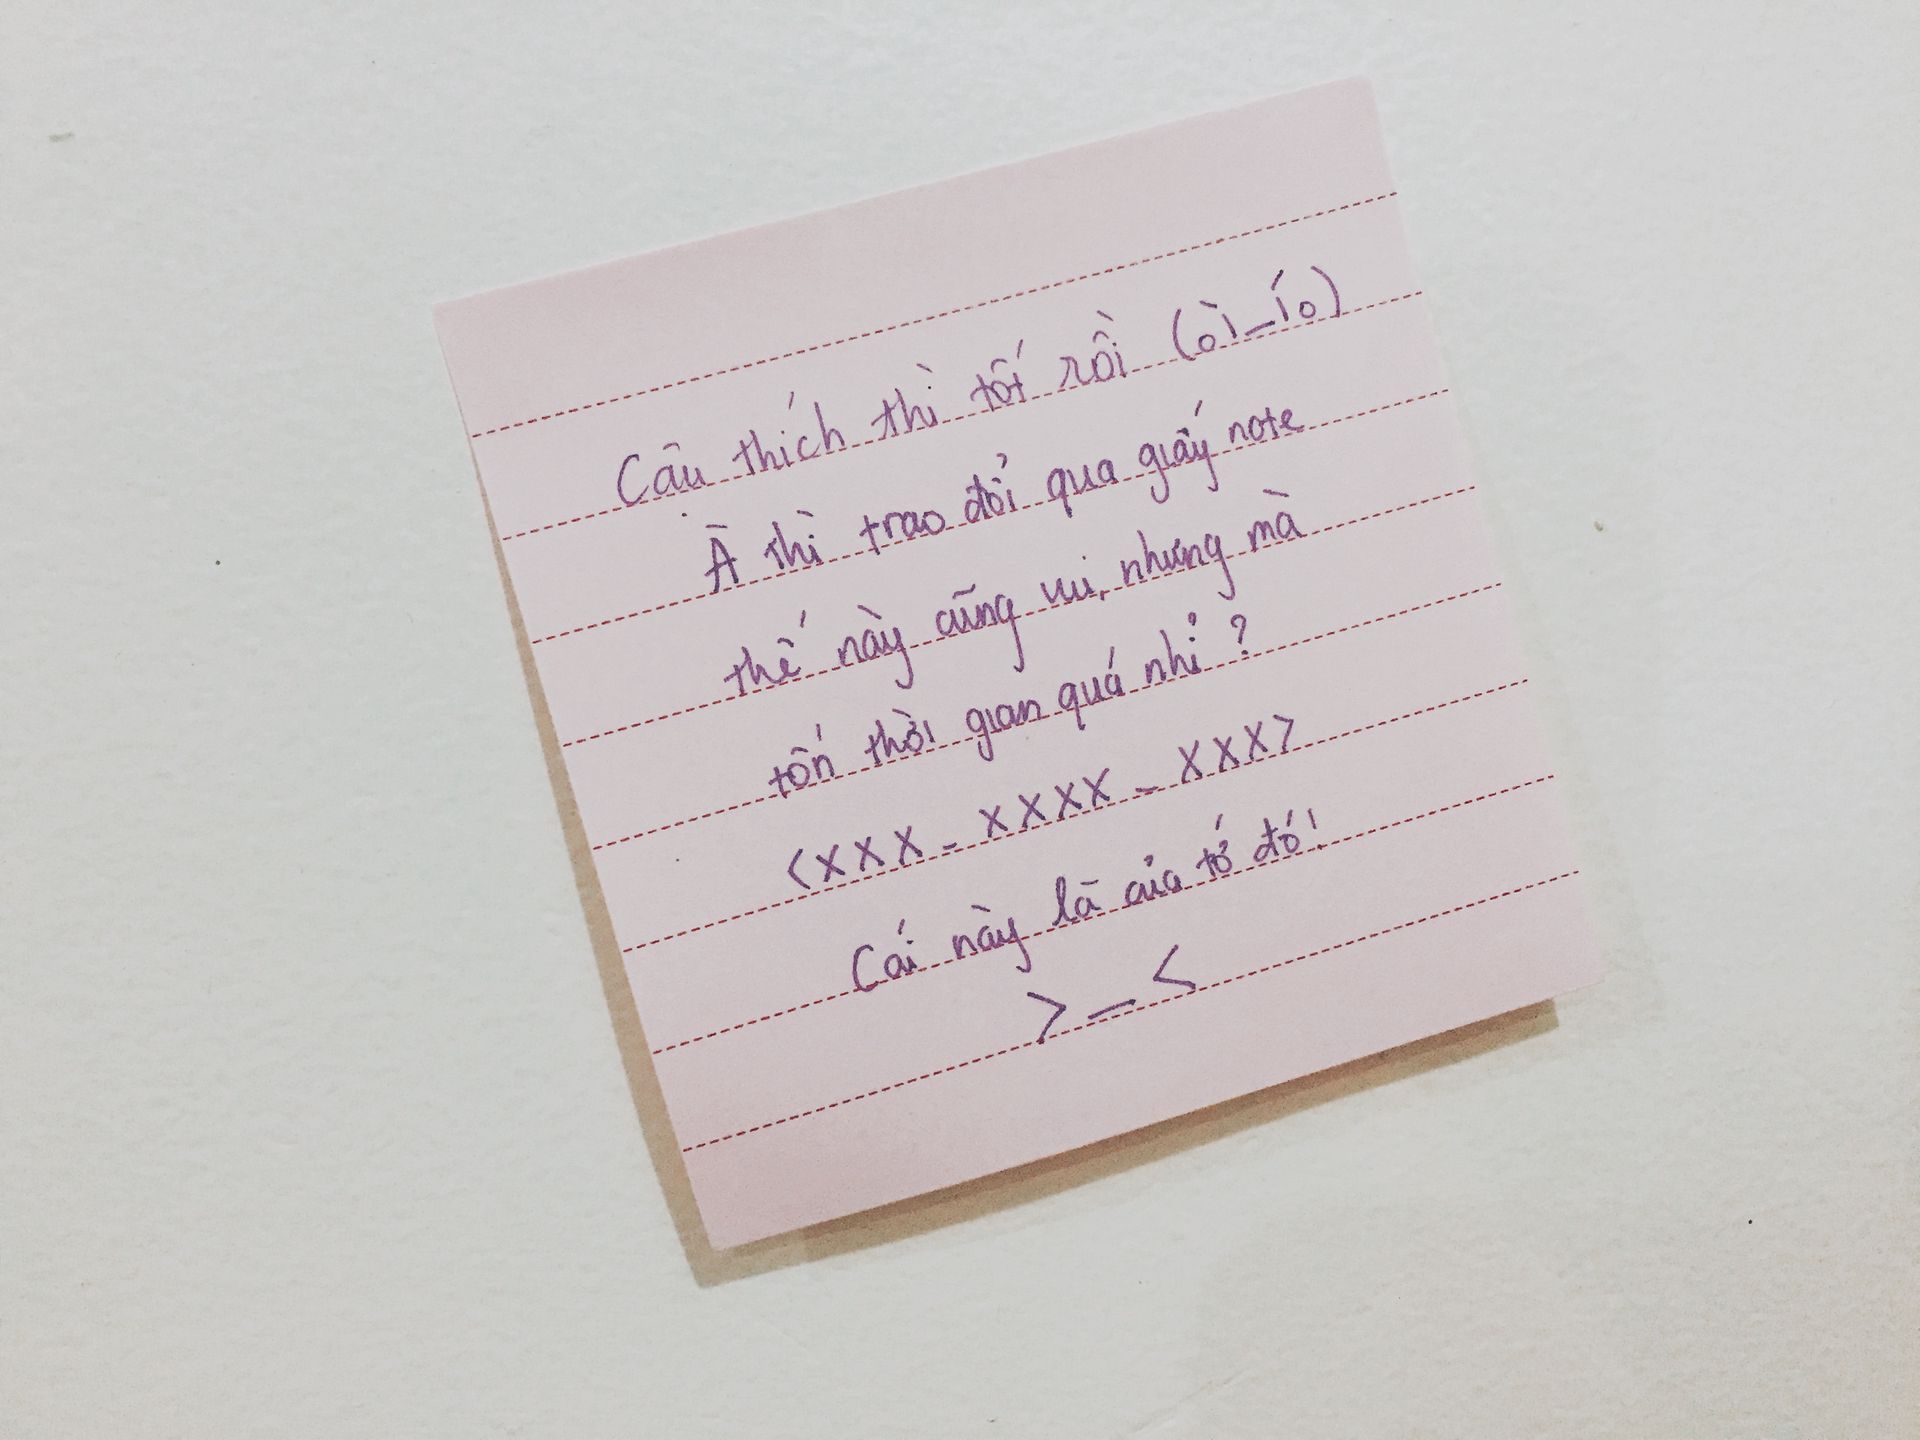 Cậu thích thì tốt rồi (òi_ío)
À thì trao đổi qua giấy note
thế này cũng vui, nhưng mà
tốn thời gian quá nhỉ?
<XXX - XXXX - XXX>
Cái này là của tớ đó!
>_<